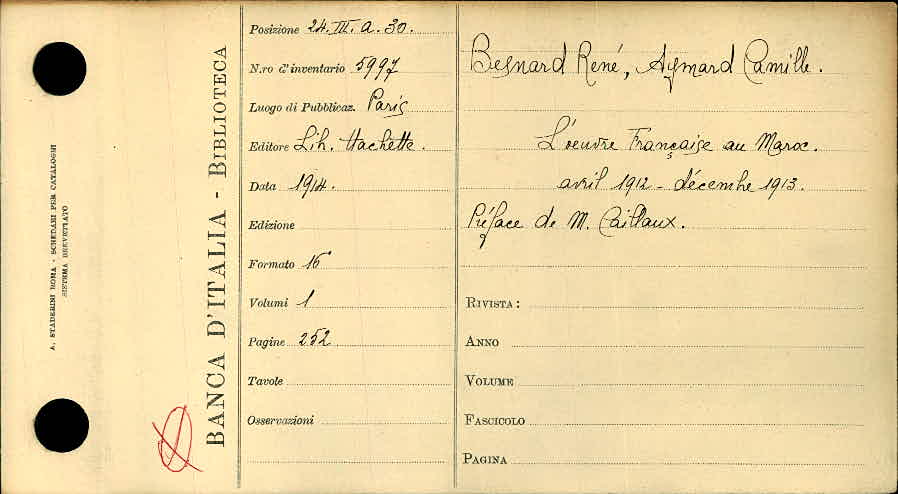 A. STADERINI ROMA - SCHEDARI PER CATALOGHI
SISTEMA BREVETTATO
BANCA D'ITALIA - BIBLIOTECA
Posizione 24. III. a. 30.
N.ro d'inventario 5997
Luogo di Pubblicaz. Paris
Editore Lib. Hachette.
Data 1914.
Edizione
Formato 16°
Volumi 1
Pagine 252
Tavole
Osservazioni
Besnard René, Aymard Camille.
L'oeuvre Française au Maroc.
avril 1912 - décembre 1913.
Préface de M. Caillaux.
RIVISTA:
ANNO
VOLUME
FASCICOLO
PAGINA